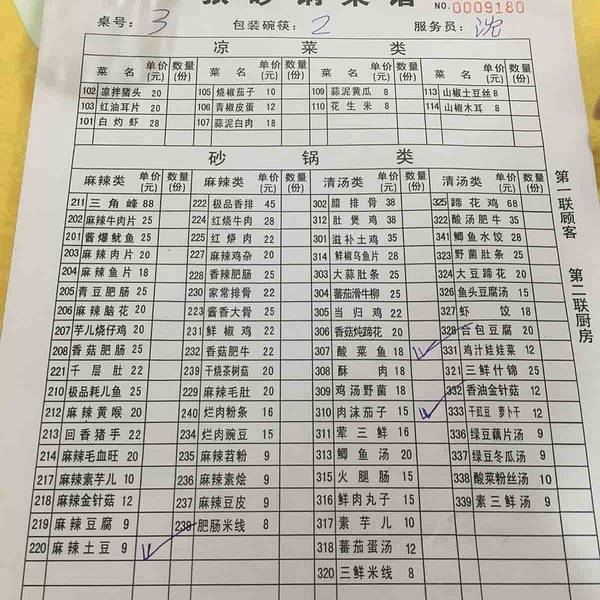 NO.0009180
桌号: 3 包装碗筷: 2 服务员: 沈
凉 菜 类
菜 名 单价(元) 数量(份) 菜 名 单价(元) 数量(份) 菜 名 单价(元) 数量(份) 菜 名 单价(元) 数量(份)
102 凉拌猪头 20 105 烧椒茄子 10 109 蒜泥黄瓜 8 113 山椒土豆丝 8
103 红油耳片 20 106 青椒皮蛋 12 110 花生米 8 114 山椒木耳 8
101 白灼虾 28 107 蒜泥白肉 18
砂 锅 类
麻辣类 单价(元) 数量(份) 麻辣类 单价(元) 数量(份) 清汤类 单价(元) 数量(份) 清汤类 单价(元) 数量(份)
211 三角峰 88 222 极品香排 45 302 腊排骨 38 325 蹄花鸡 68
202 麻辣牛肉片 25 224 红烧牛肉 28 312 肚煲鸡 38 322 酸汤肥牛 35
201 酱爆鱿鱼 25 225 红烧肉 22 301 滋补土鸡 35 341 鲫鱼水饺 28
203 麻辣肉片 20 227 麻辣鸡杂 20 314 鲜椒乌鱼片 28 323 野菌肚条 25
204 麻辣鱼片 18 228 香辣肥肠 25 303 大蒜肚条 25 324 大豆蹄花 20
205 青豆肥肠 25 230 家常排骨 22 304 蕃茄滑牛柳 25 326 鱼头豆腐汤 15
206 麻辣脑花 20 223 酱香大骨 25 305 当归鸡 22 327 虾饺 18
207 芋儿烧仔鸡 20 231 鲜椒鸡 22 306 香菇炖蹄花 20 328 合包豆腐 20
208 香菇肥肠 25 232 香菇肥牛 22 307 酸菜鱼 18 331 鸡汁娃娃菜 12
221 千层肚 22 239 干烧茶树菇 20 308 酥肉 18 321 三鲜什锦 25
210 极品耗儿鱼 25 229 麻辣毛肚 20 309 鸡汤野菌 18 332 香油金针菇 12
212 麻辣黄喉 20 240 烂肉粉条 16 310 肉沫茄子 15 333 干豇豆 萝卜干 12
213 回香猪手 22 234 烂肉豌豆 15 311 荤三鲜 16 336 绿豆藕片汤 9
214 麻辣毛血旺 20 235 麻辣苕粉 9 313 鲫鱼汤 20 337 绿豆冬瓜汤 9
217 麻辣素芋儿 10 236 麻辣素烩 9 315 火腿肠 15 338 酸菜粉丝汤 10
218 麻辣金针菇 12 237 麻辣豆皮 9 316 鲜肉丸子 15 339 素三鲜汤 9
219 麻辣豆腐 9 238 肥肠米线 8 317 素芋儿 10
220 麻辣土豆 9 318 蕃茄蛋汤 12
320 三鲜米线 8
第一联顾客
第二联厨房